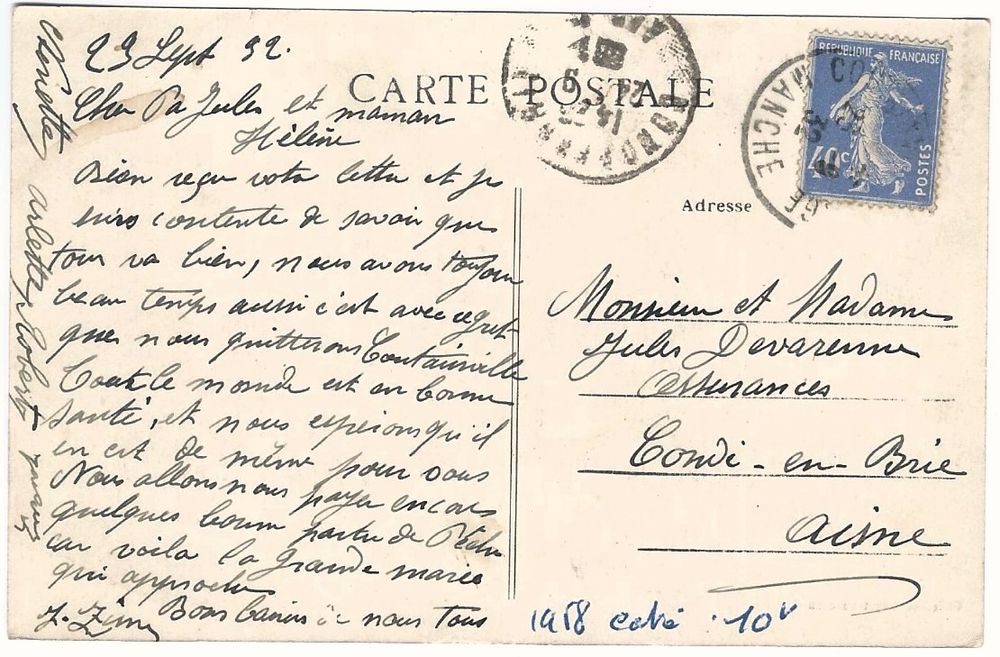 23 Sept 32.
CARTE POSTALE
Cher Pa Jules et maman
Hélène
Bien reçu votre lettre et je
suis contente de savoir que
tout va bien, nous avons toujours
beau temps aussi c'est avec regret
que nous quitterons Coutainville
Tout le monde est en bonne
santé, et nous espérons qu'il
en est de même pour vous
Nous allons nous payer encore
quelques bonne partie de Pêche
car voila la grande marée
qui approche
Bons baisers de nous tous
Arlette Robert
Adresse
Monsieur et Madame
Jules Devarenne
Assurances
Condé-en-Brie
Aisne
1958 coté 10
REPUBLIQUE FRANÇAISE
40c
POSTES
MANCHE